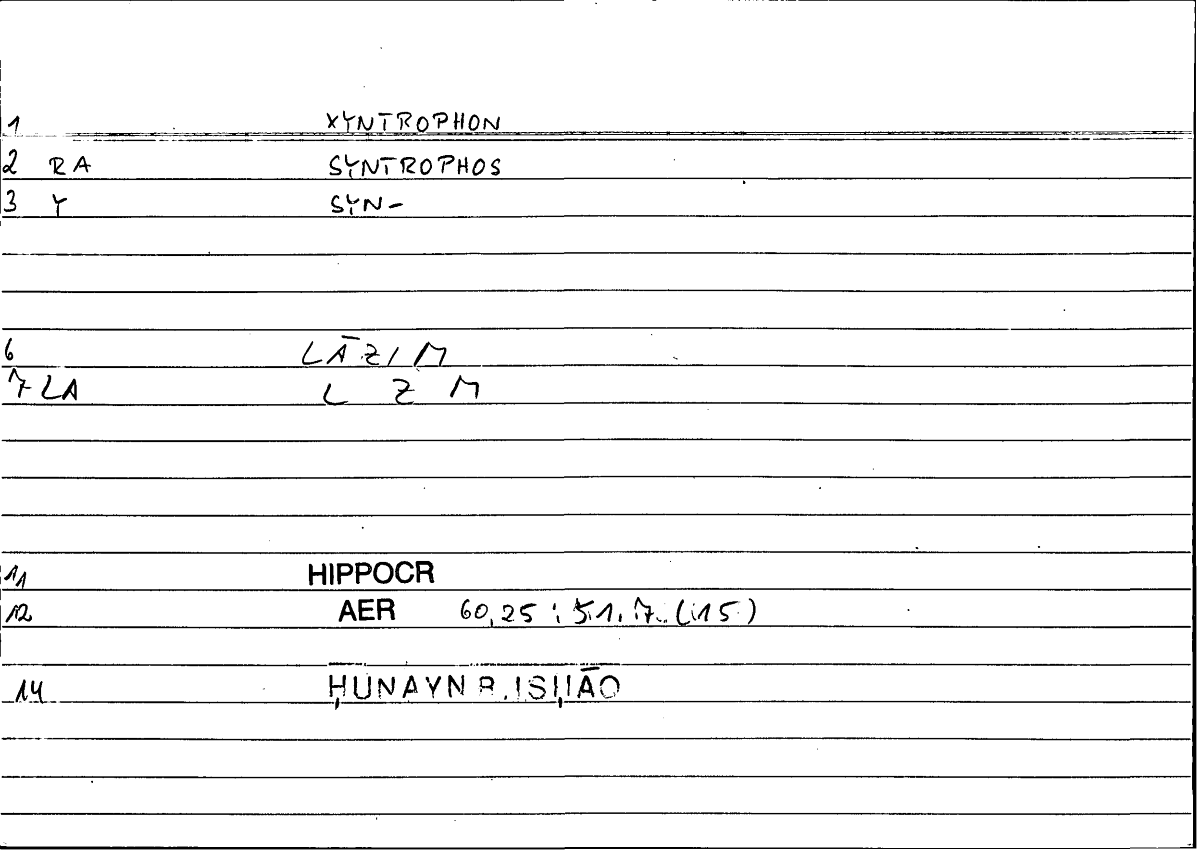 1 XYNTROPHON
2 RA SYNTROPHOS
3 Y SYN-
6 LĀZIM
7 LA L Z M
11 HIPPOCR
12 AER 60,25 : 51,7 (15)
14 ḤUNAYN B. ISḤĀQ